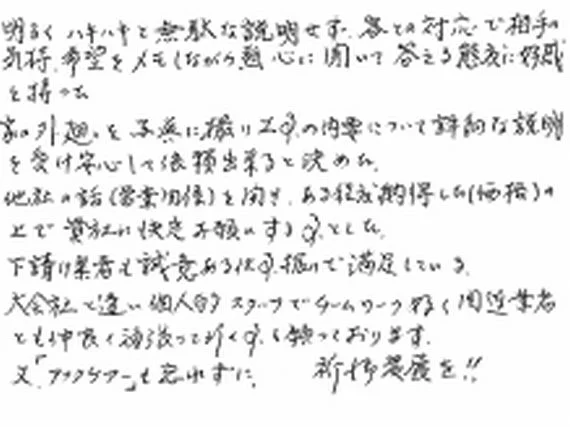 明るくハキハキと無駄な説明せず、各々の対応で相手の
気持、希望をメモしながら熱心に聞いて答える態度に好感
を持った
家の外廻りを写真に撮り工事の内容について詳的な説明
を受け安心して依頼出来ると決めた。
他社の話(営業関係)を聞き、ある程度納得した(価格)の
上で貴社に決定お願いする事とした。
下請け業者も誠意ある仕事振りで満足している。
大会社と違い個人的スタッフでチームワーク好く関連業者
とも仲良く頑張って行く事を願っております。
又「アフターケアー」も忘れずに、 祈御発展を!!